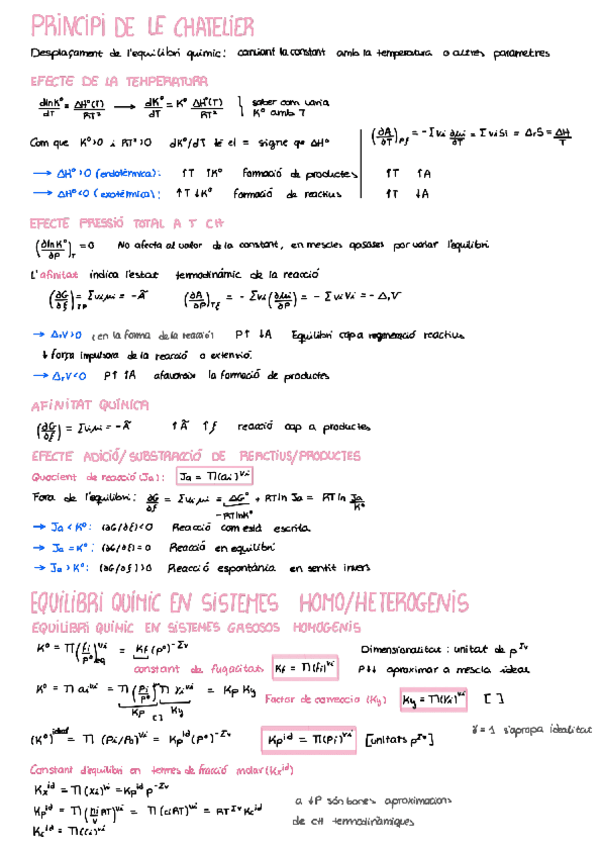 PRINCIPI DE LE CHATELIER
Desplaçament de l'equilibri químic: canviant la constant amb la temperatura o altres paràmetres
EFECTE DE LA TEMPERATURA
dlnK°/dT = ΔH°(T)/RT² → dK°/dT = K° ΔH°(T)/RT² } saber com varia K° amb T
Com que K°>0 i RT²>0 dK°/dT té el = signe que ΔH°
(∂A/∂T)P,ξ = -Σνi ∂μi/∂T = ΣνiSi = ΔrS = ΔH/T
→ ΔH°>0 (endotèrmica): ↑T ↑K° formació de productes ↑T ↑A
→ ΔH°<0 (exotèrmica): ↑T ↓K° formació de reactius ↑T ↓A
EFECTE PRESSIÓ TOTAL A T CH
(∂lnK°/∂P)T = 0 No afecta al valor de la constant, en mescles gasoses pot variar l'equilibri
L'afinitat indica l'estat termodinàmic de la reacció
(∂G/∂ξ)TP = Σνiμi = -Ã (∂A/∂P)Tξ = -Σνi(∂μi/∂P) = -ΣνiVi = -ΔrV
→ ΔrV>0 (en la forma de la reacció) P↑ ↓A Equilibri cap a regeneració reactius
↓ força impulsora de la reacció o extensió.
→ ΔrV<0 P↑ ↑A afavoreix la formació de productes
AFINITAT QUÍMICA
(∂G/∂ξ) = Σνiμi = -Ã ↑Ã ↑ξ reacció cap a productes
EFECTE ADICIÓ/SUBSTRACCIÓ DE REACTIUS/PRODUCTES
Quocient de reacció (Ja): Ja = Π(ai)^νi
Fora de l'equilibri: ∂G/∂ξ = Σνiμi = ΔG° + RTlnJa = RTln Ja/K°
-RTlnK°
→ Ja < K°: (∂G/∂ξ)<0 Reacció com està escrita.
→ Ja = K°: (∂G/∂ξ)=0 Reacció en equilibri
→ Ja > K°: (∂G/∂ξ)>0 Reacció espontània en sentit invers
EQUILIBRI QUÍMIC EN SISTEMES HOMO/HETEROGENIS
EQUILIBRI QUÍMIC EN SISTEMES GASOSOS HOMOGENIS
K° = Π(fi/P°)^νi eq = Kf (P°)^-Σν Dimensionalitat: unitat de p^Σν
constant de fugacitats Kf = Π(fi)^νi P↓↓ aproximar a mescla ideal
K° = Π ai^νi = Π(Pi/P°)^νi Π γi^νi = Kp Kγ Factor de correcció (Kγ) Kγ = Π(γi)^νi [ ]
Kp [ ] Kγ
(K°)^ideal = Π (Pi/P0)^νi = Kp^id (P°)^-Σν Kp^id = Π(Pi)^νi [unitats p^Σν] γ=1 s'apropa idealitat
Constant d'equilibri en termes de fracció molar (Kx^id)
Kx^id = Π(xi)^νi = Kp^id P^-Σν
Kp^id = Π(ni/V RT)^νi = Π(ciRT)^νi = RT^Σν Kc^id
Kc^id = Π(ci)^νi
a ↓P són bones aproximacions
de cH termodinàmiques